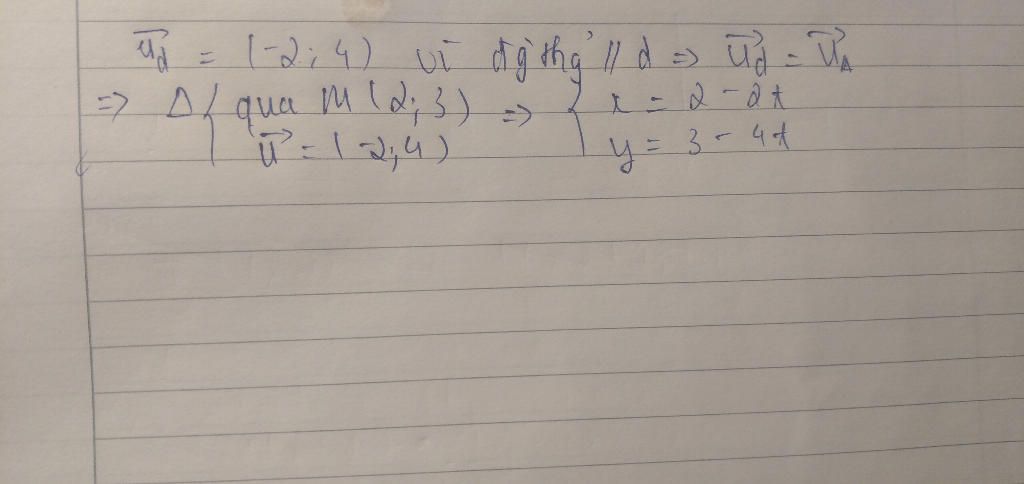 u⃗d = (-2; 4) vì đg thg // d => u⃗d = u⃗Δ
=> Δ { qua M (2; 3) => { x = 2 - 2t
u⃗ = (-2; 4) y = 3 - 4t